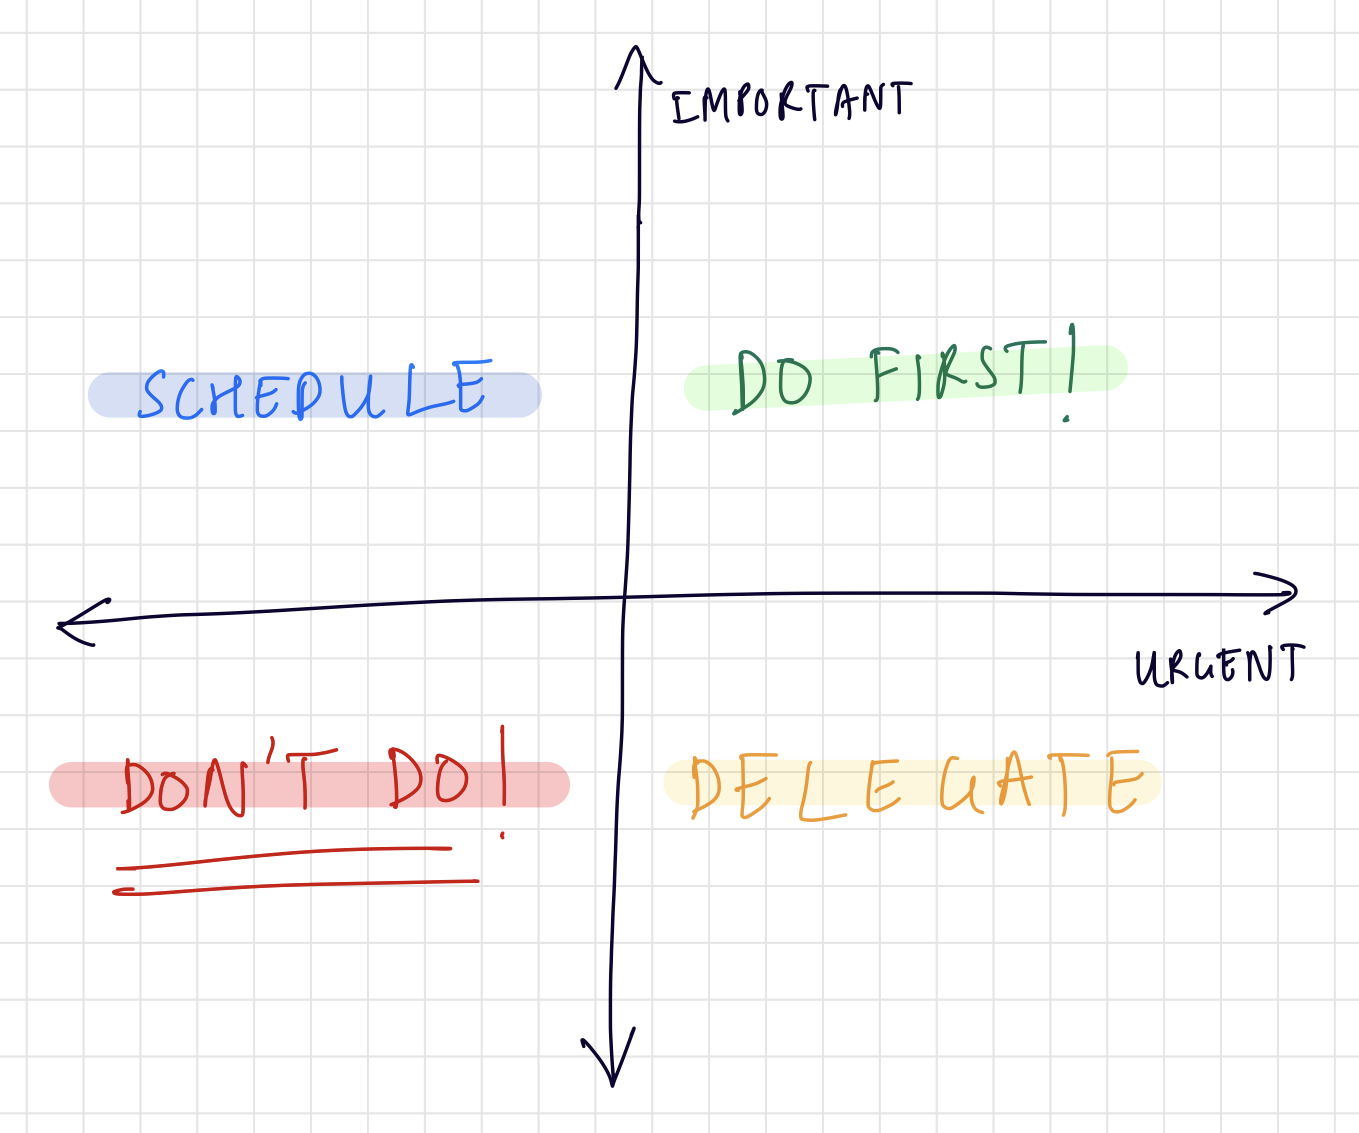 IMPORTANT
SCHEDULE
DO FIRST!
URGENT
DON'T DO!
DELEGATE